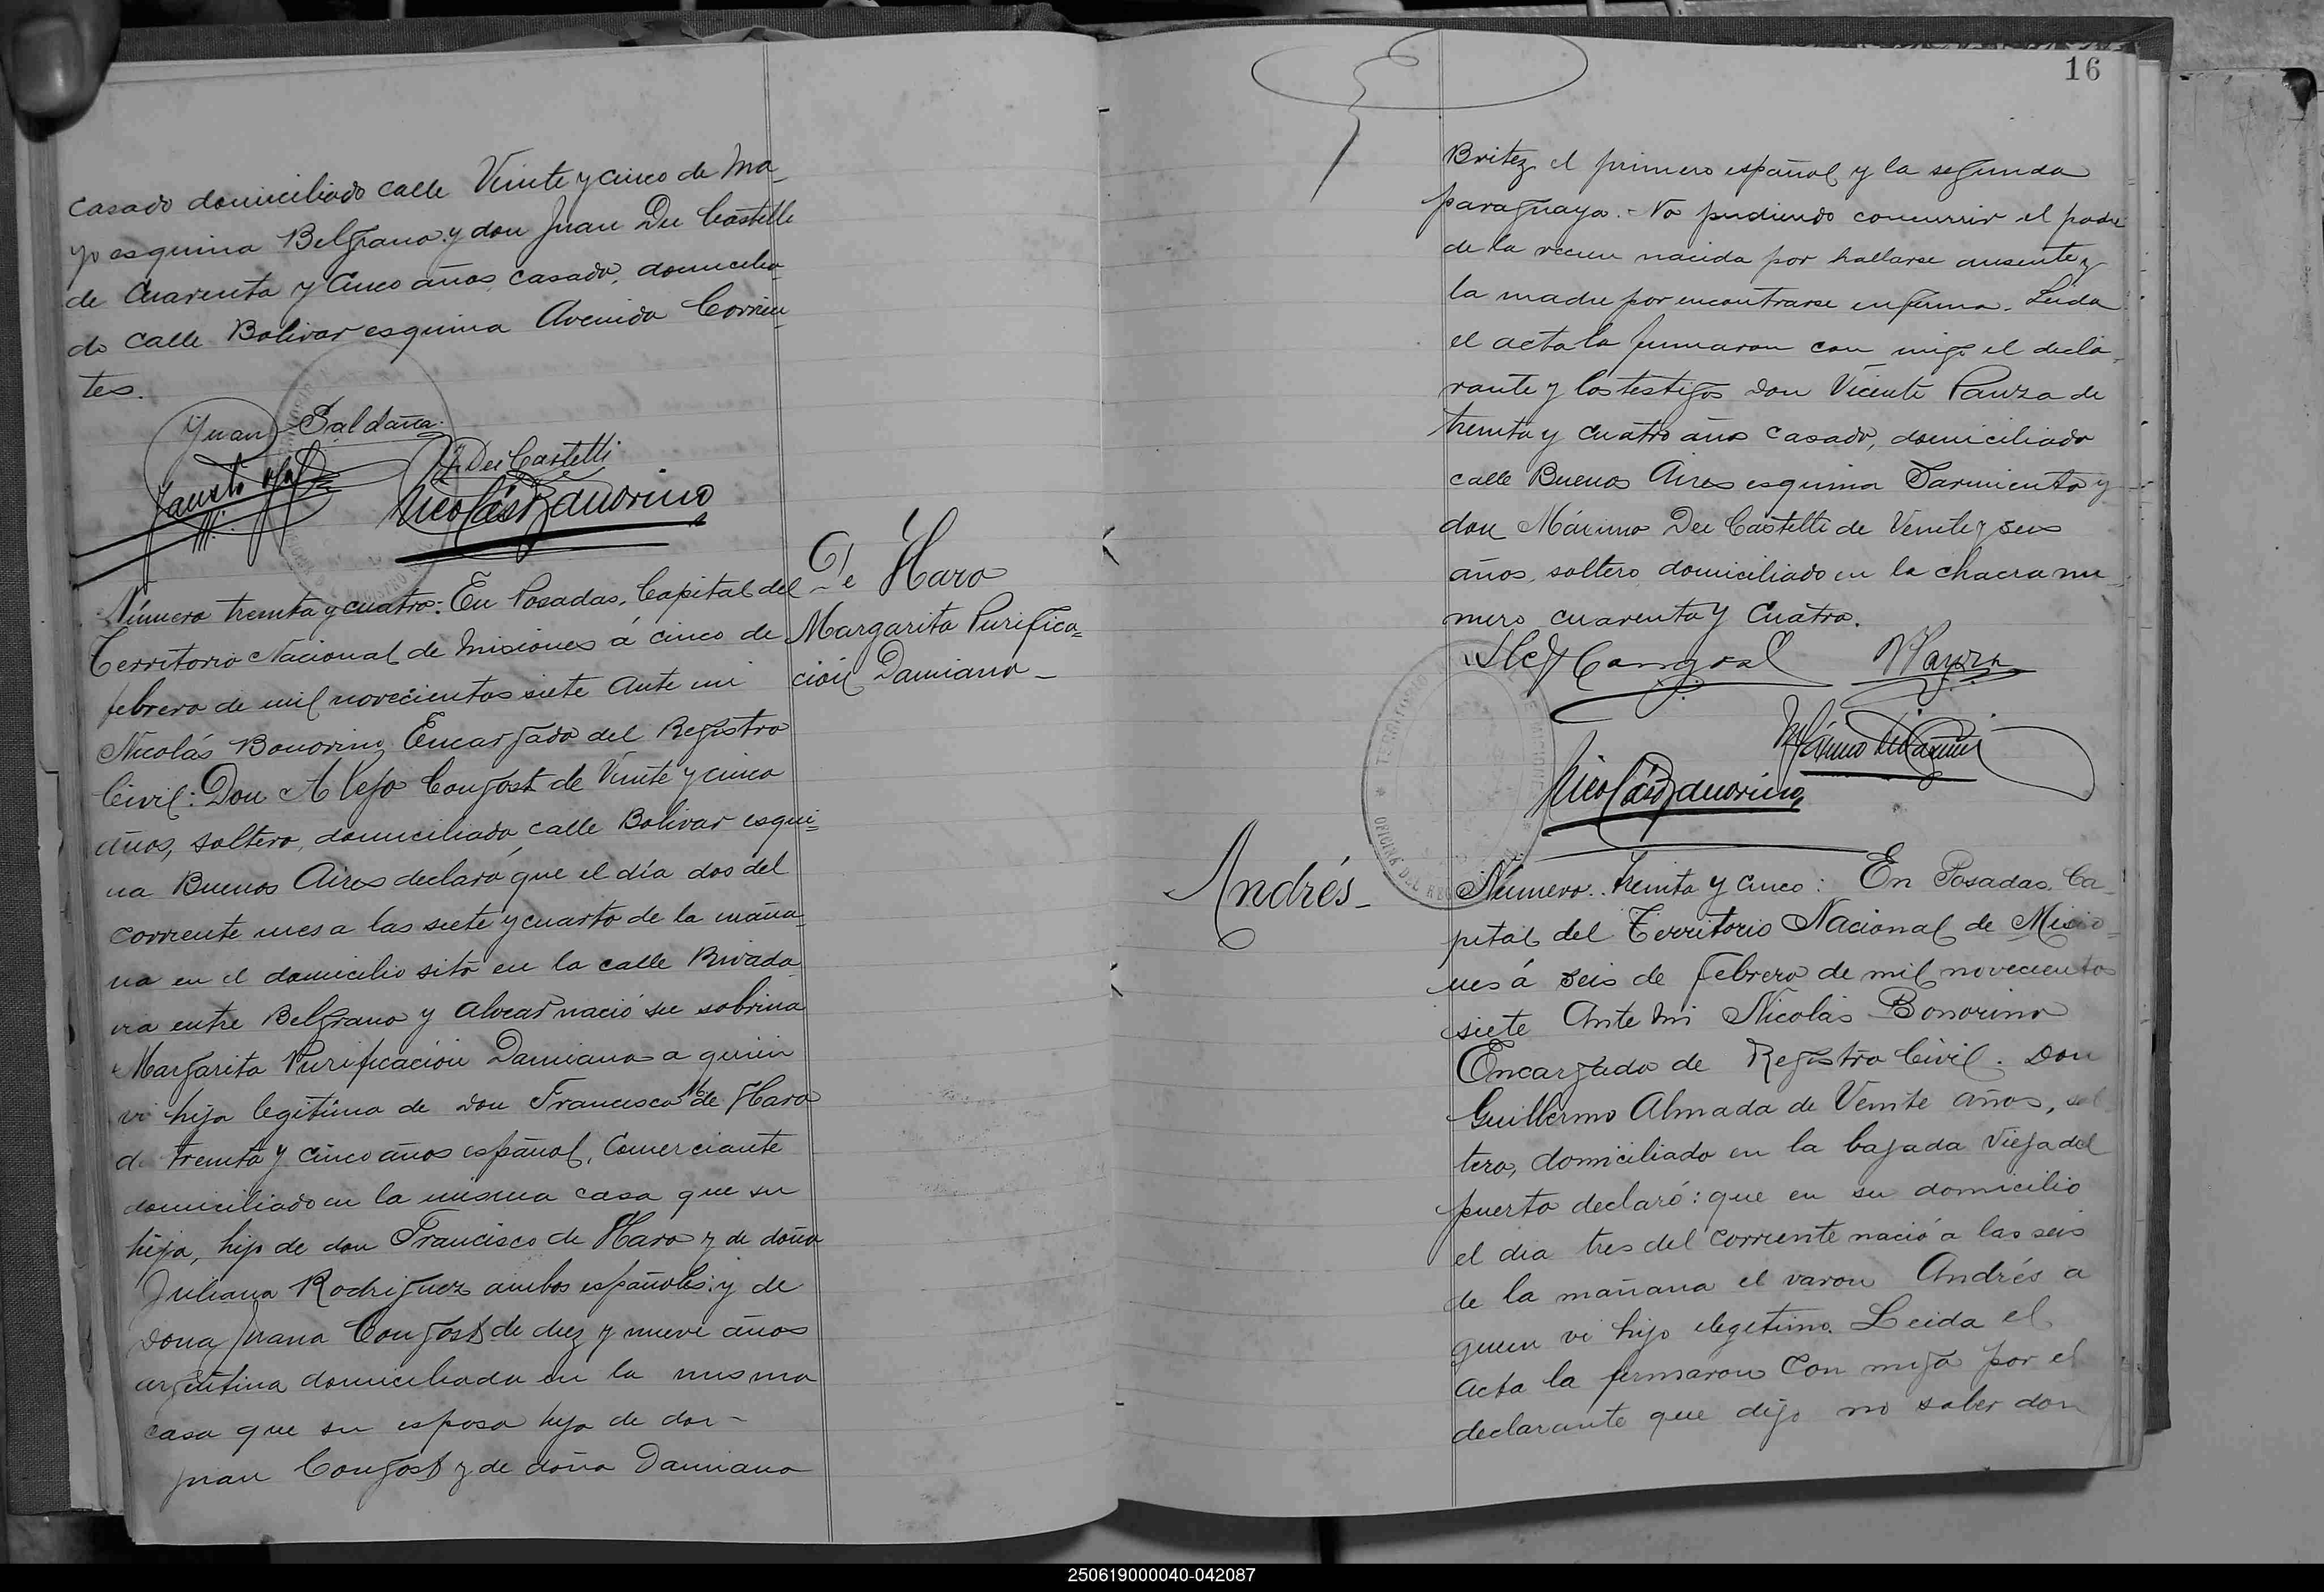 casado domiciliado calle Veinte y cinco de Ma_
yo esquina Belgrano y don Juan Dei Castelli
de Cuarenta y Cinco años, casado, domicilia_
do calle Bolivar esquina Avenida Corrien_
tes.
Juan Saldaña
J. Dei Castelli
Fausto
Nicolás Bonorino
Número treinta y cuatro: En Posadas, Capital del
Territorio Nacional de Misiones á cinco de
febrero de mil novecientos siete Ante mi
Nicolás Bonorino Encargado del Registro
Civil: Don Alejo Congost de Veinte y cinco
años, soltero, domiciliado calle Bolivar esqui=
na Buenos Aires declaró que el día dos del
corriente mes a las siete y cuarto de la maña_
na en el domicilio sito en la calle Rivada_
via entre Belgrano y Alvear nació su sobrina
Margarita Purificación Damiana a quien
vi hija legitima de don Francisco M. de Haro
de treinta y cinco años español, Comerciante
domiciliado en la misma casa que su
hija, hijo de don Francisco de Haro y de doña
Juliana Rodriguez ambos españoles: y de
dona Juana Congost de diez y nueve años
argentina domiciliada en la misma
casa que su esposo hija de don
Juan Congost y de doña Damiana
De Haro
Margarita Purifica=
ción Damiana_
16
Britez el primero español y la segunda
paraguaya.- No pudiendo concurrir el padre
de la recien nacida por hallarse ausente y
la madre por encontrarse enferma. Leida
el acta la firmaron con migo el decla_
rante y los testigos don Vicente Panza de
treinta y cuatro años casado, domiciliado
calle Buenos Aires esquina Sarmiento y
don Máximo Dei Castelli de Veinte y seis
años, soltero domiciliado en la chacra nu_
mero cuarenta y Cuatro.
Alejo Congost
V Panza
Máximo Dei Castelli
Nicolás Bonorino
Andrés_
Número treinta y cinco: En Posadas, Ca_
pital del Territorio Nacional de Misio=
nes á seis de febrero de mil novecientos
siete Ante Mi Nicolás Bonorino
Encargado de Registro Civil. Don
Guillermo Almada de Veinte años, sol
tero, domiciliado en la bajada Vieja del
puerto declaró: que en su domicilio
el dia tres del corriente nació a las seis
de la mañana el varon Andrés a
quien vi hijo ilegetimo. Leida el
Acta la firmaron Con migo por el
declarante que dijo no saber don
250619000040-042087